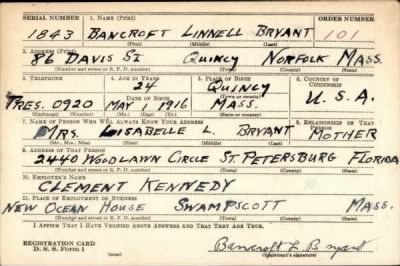 SERIAL NUMBER 1. NAME (Print) ORDER NUMBER
1843 BANCROFT LINNELL BRYANT 101
(First) (Middle) (Last)
2. ADDRESS (Print)
86 DAVIS ST. QUINCY NORFOLK MASS.
(Number and street or R. F. D. number) (Town) (County) (State)
3. TELEPHONE 4. AGE IN YEARS 5. PLACE OF BIRTH 6. COUNTRY OF CITIZENSHIP
24 QUINCY
DATE OF BIRTH (Town or county)
PRES. 0920 MAY 1, 1916 MASS. U.S.A.
(Exchange) (Number) (Mo.) (Day) (Yr.) (State or country)
7. NAME OF PERSON WHO WILL ALWAYS KNOW YOUR ADDRESS 8. RELATIONSHIP OF THAT PERSON
MRS. LISABELLE L. BRYANT MOTHER
(Mr., Mrs., Miss) (First) (Middle) (Last)
9. ADDRESS OF THAT PERSON
2440 WOODLAWN CIRCLE ST. PETERSBURG FLORIDA
(Number and street or R. F. D. number) (Town) (County) (State)
10. EMPLOYER'S NAME
CLEMENT KENNEDY
11. PLACE OF EMPLOYMENT OR BUSINESS
NEW OCEAN HOUSE SWAMPSCOTT MASS.
(Number and street or R. F. D. number) (Town) (County) (State)
I AFFIRM THAT I HAVE VERIFIED ABOVE ANSWERS AND THAT THEY ARE TRUE.
REGISTRATION CARD
D. S. Form 1 (over) Bancroft L Bryant
(Registrant's signature)